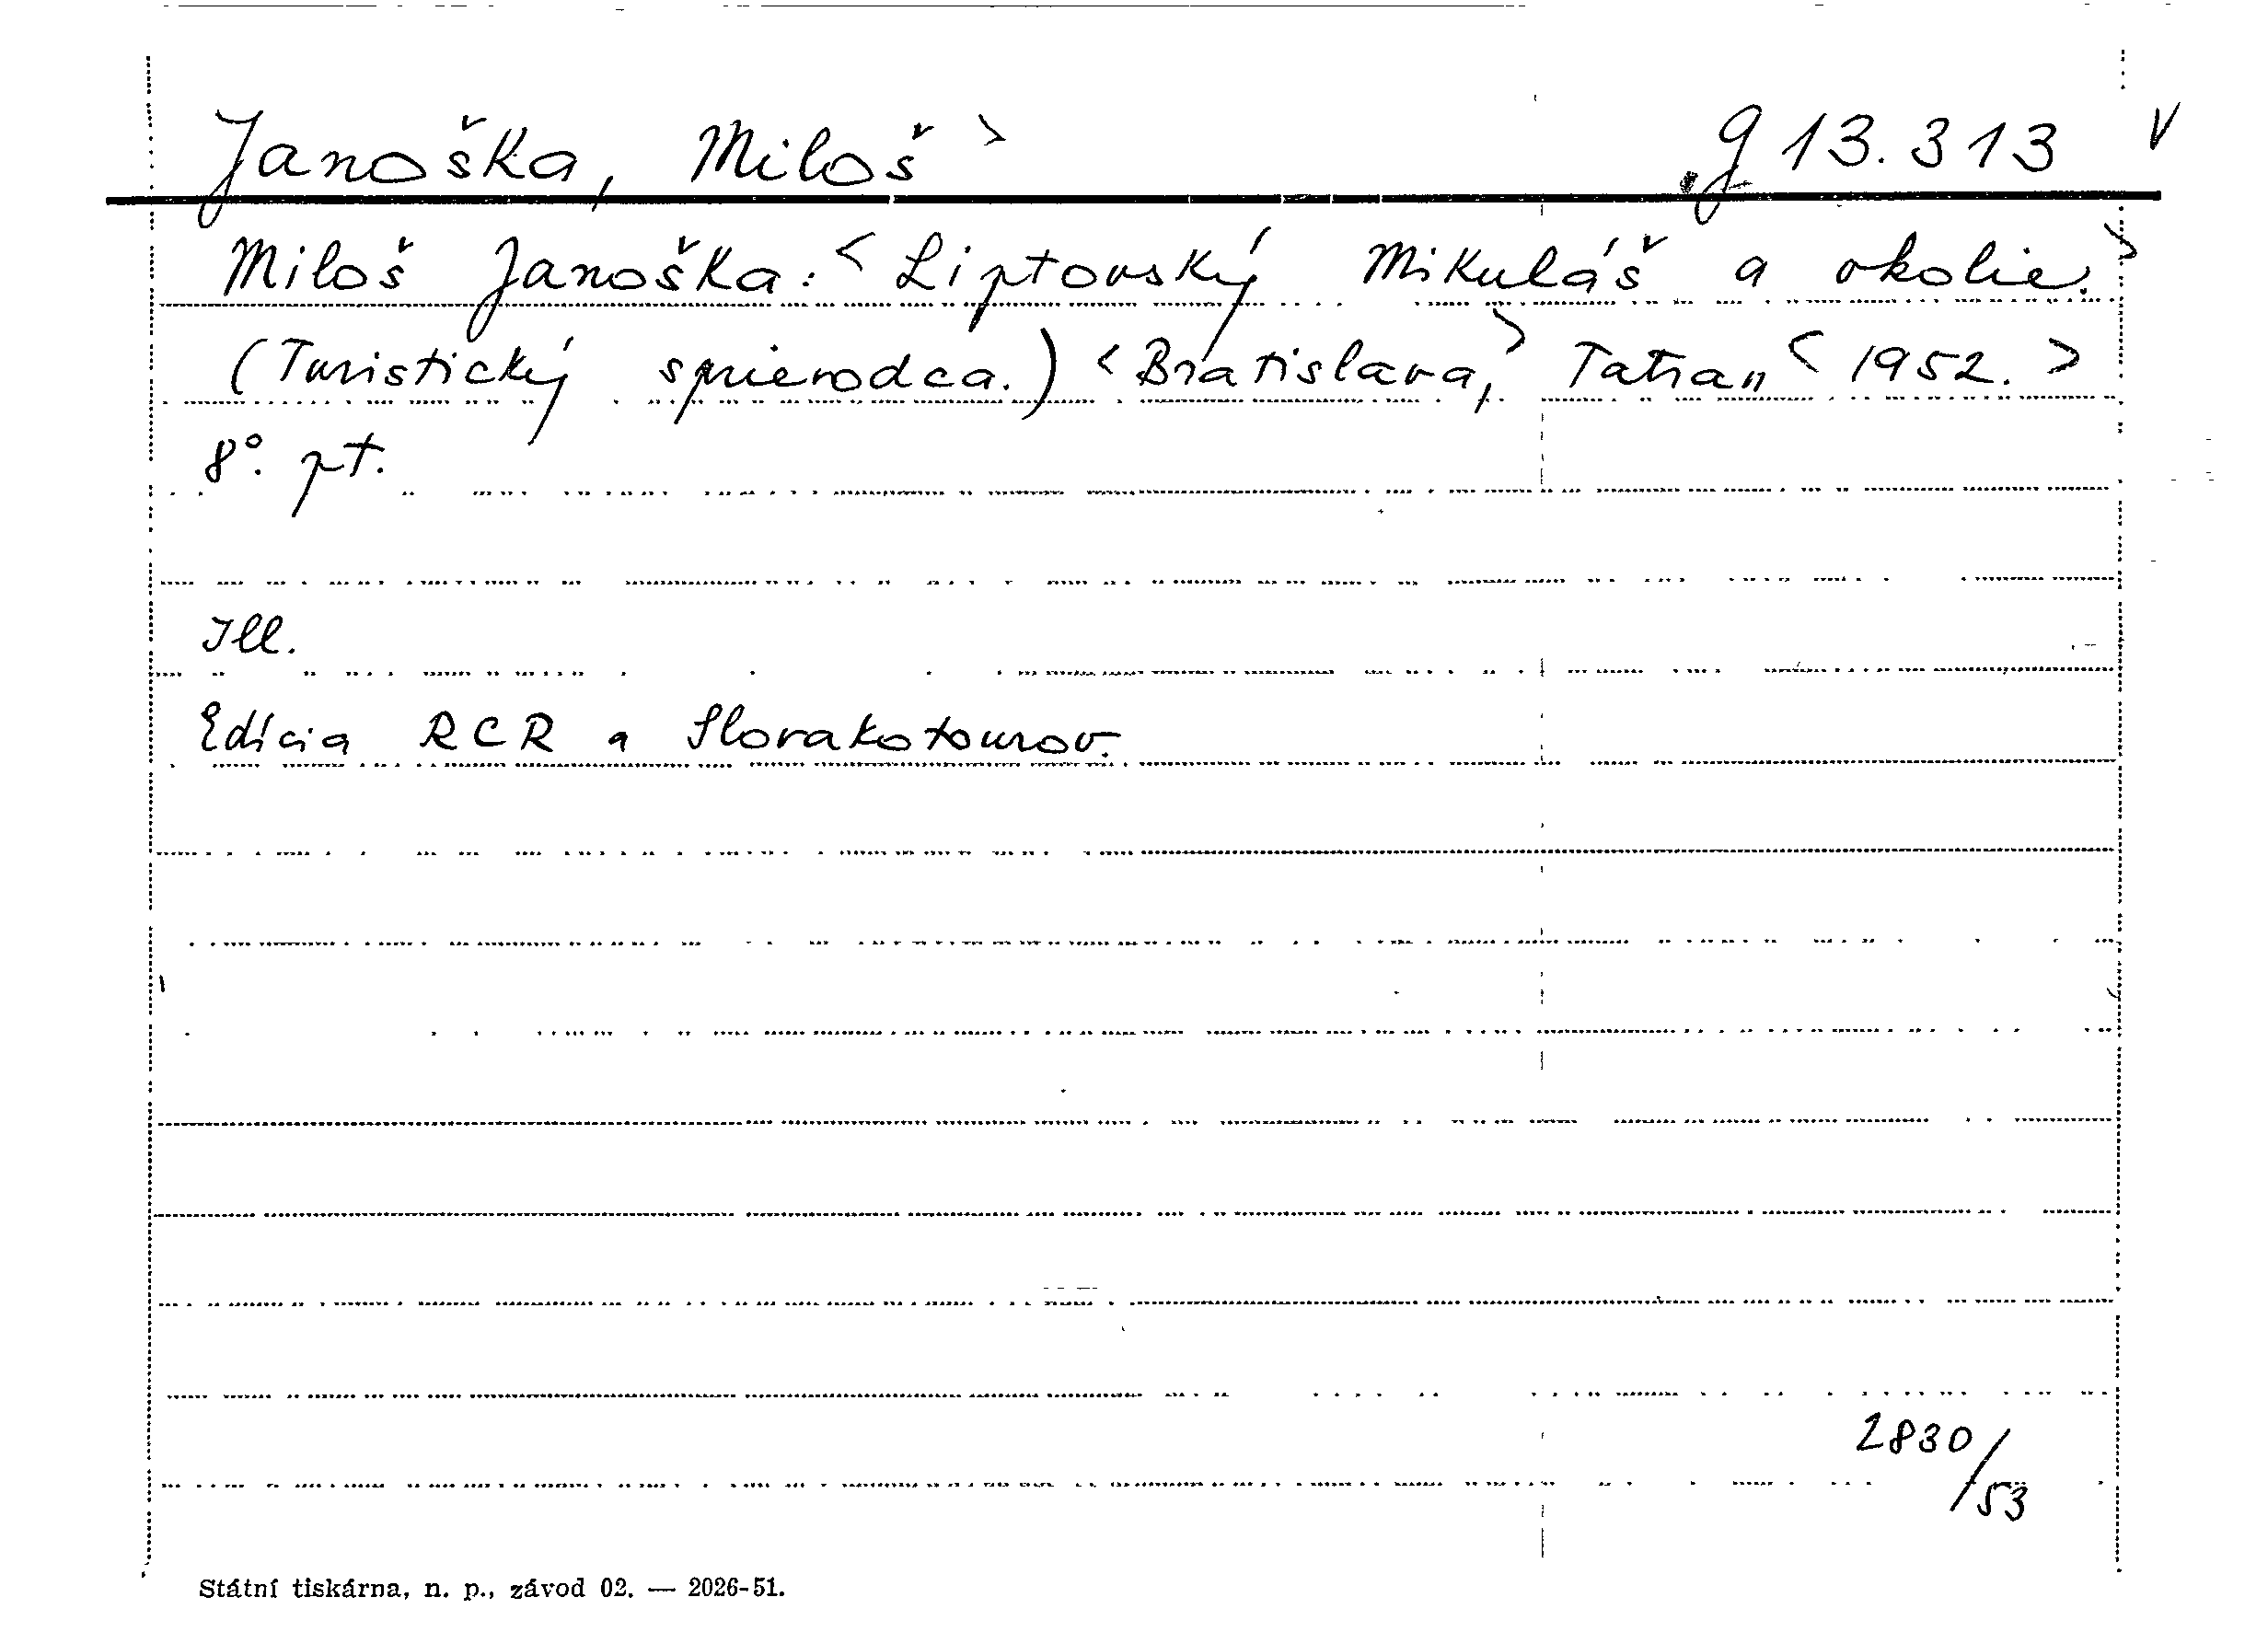 Janoška, Miloš > g 13.313 v
Miloš Janoška: < Liptovský Mikuláš a okolie. >
(Turistický sprievodca.) < Bratislava, > Tatran < 1952. >
8°. pt.
Ill.
Edícia RCR a Slovakotourov.
2830/53
Státní tiskárna, n. p., závod 02. — 2026-51.